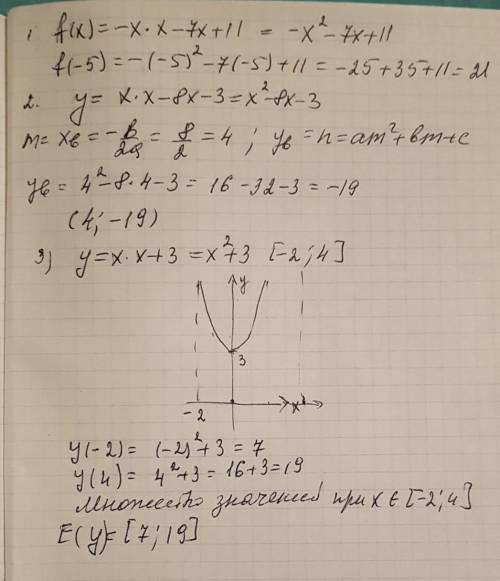 1. f(x) = -x · x - 7x + 11 = -x² - 7x + 11
f(-5) = -(-5)² - 7(-5) + 11 = -25 + 35 + 11 = 21
2. y = x · x - 8x - 3 = x² - 8x - 3
m = xв = -в/2a = 8/2 = 4 ; yв = n = am² + вm + c
yв = 4² - 8 · 4 - 3 = 16 - 32 - 3 = -19
(4; -19)
3) y = x · x + 3 = x² + 3 [-2; 4]
y
3
-2 x
y(-2) = (-2)² + 3 = 7
y(4) = 4² + 3 = 16 + 3 = 19
Множество значений при x ∈ [-2; 4]
E(y) = [7; 19]